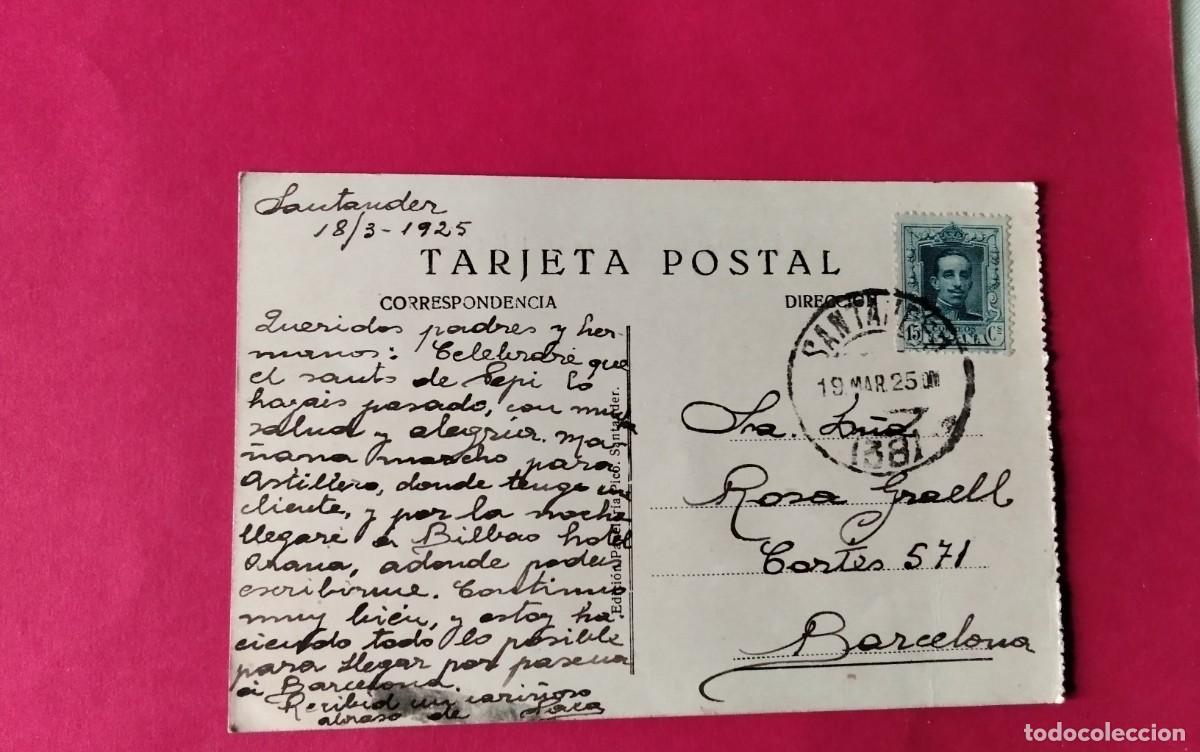 Santander
18/3-1925
TARJETA POSTAL
CORRESPONDENCIA
Queridos padres y her-
manos: Celebraré que
el santo de Pepi lo
hayais pasado, con mucha
salud y alegria. Ma-
ñana marcho para
Astillero, donde tengo un
cliente, y por la noche
llegaré a Bilbao hotel
Arana, adonde podeis
escribirme. Continuo
muy bién, y estoy ha-
ciendo todo lo posible
para llegar por pascua
á Barcelona.
Recibid un cariñoso
abraso de
Edición Papelería Pico. Santander.
DIRECCION
15 Cs
SANTANDER
19 MAR. 25
(38)
Sra. Dña
Rosa Graell
Cortes 571
Barcelona
todocoleccion